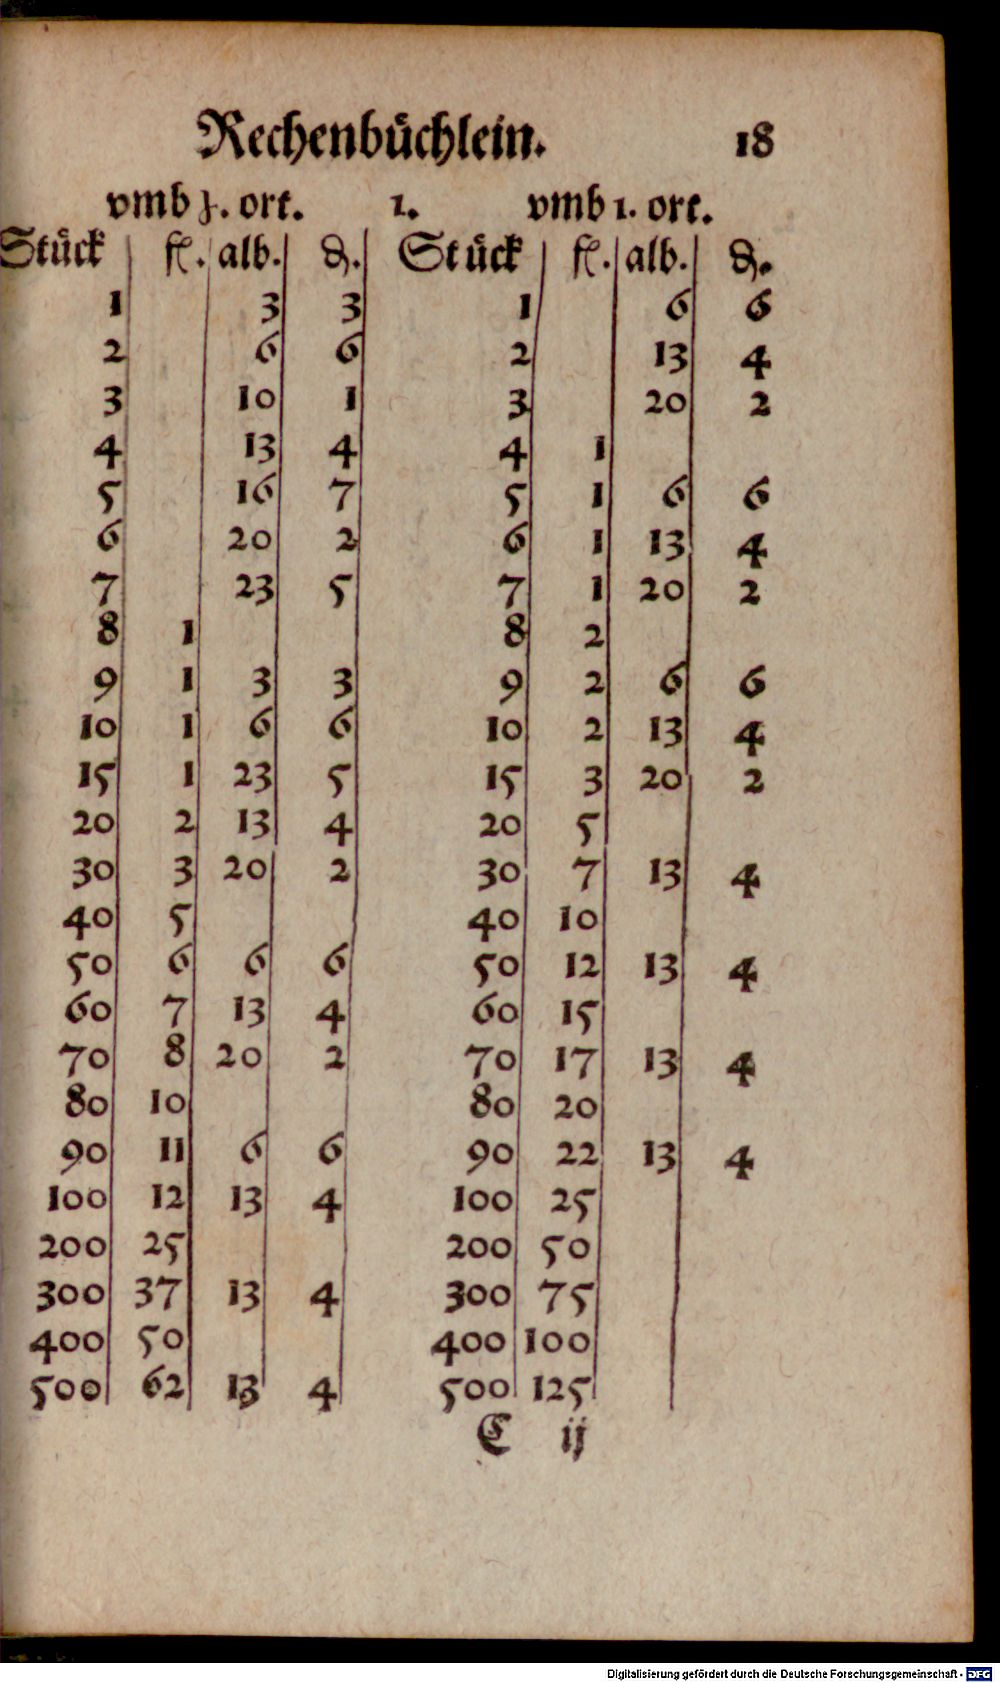 Rechenbüchlein. 18
vmb ɉ. ort. 1. vmb 1. ort.
Stück fl. alb. ₰. Stück fl. alb. ₰.
1 3 3 1 6 6
2 6 6 2 13 4
3 10 1 3 20 2
4 13 4 4 1
5 16 7 5 1 6 6
6 20 2 6 1 13 4
7 23 5 7 1 20 2
8 1 8 2
9 1 3 3 9 2 6 6
10 1 6 6 10 2 13 4
15 1 23 5 15 3 20 2
20 2 13 4 20 5
30 3 20 2 30 7 13 4
40 5 40 10
50 6 6 6 50 12 13 4
60 7 13 4 60 15
70 8 20 2 70 17 13 4
80 10 80 20
90 11 6 6 90 22 13 4
100 12 13 4 100 25
200 25 200 50
300 37 13 4 300 75
400 50 400 100
500 62 13 4 500 125
C ij
Digitalisierung gefördert durch die Deutsche Forschungsgemeinschaft - DFG